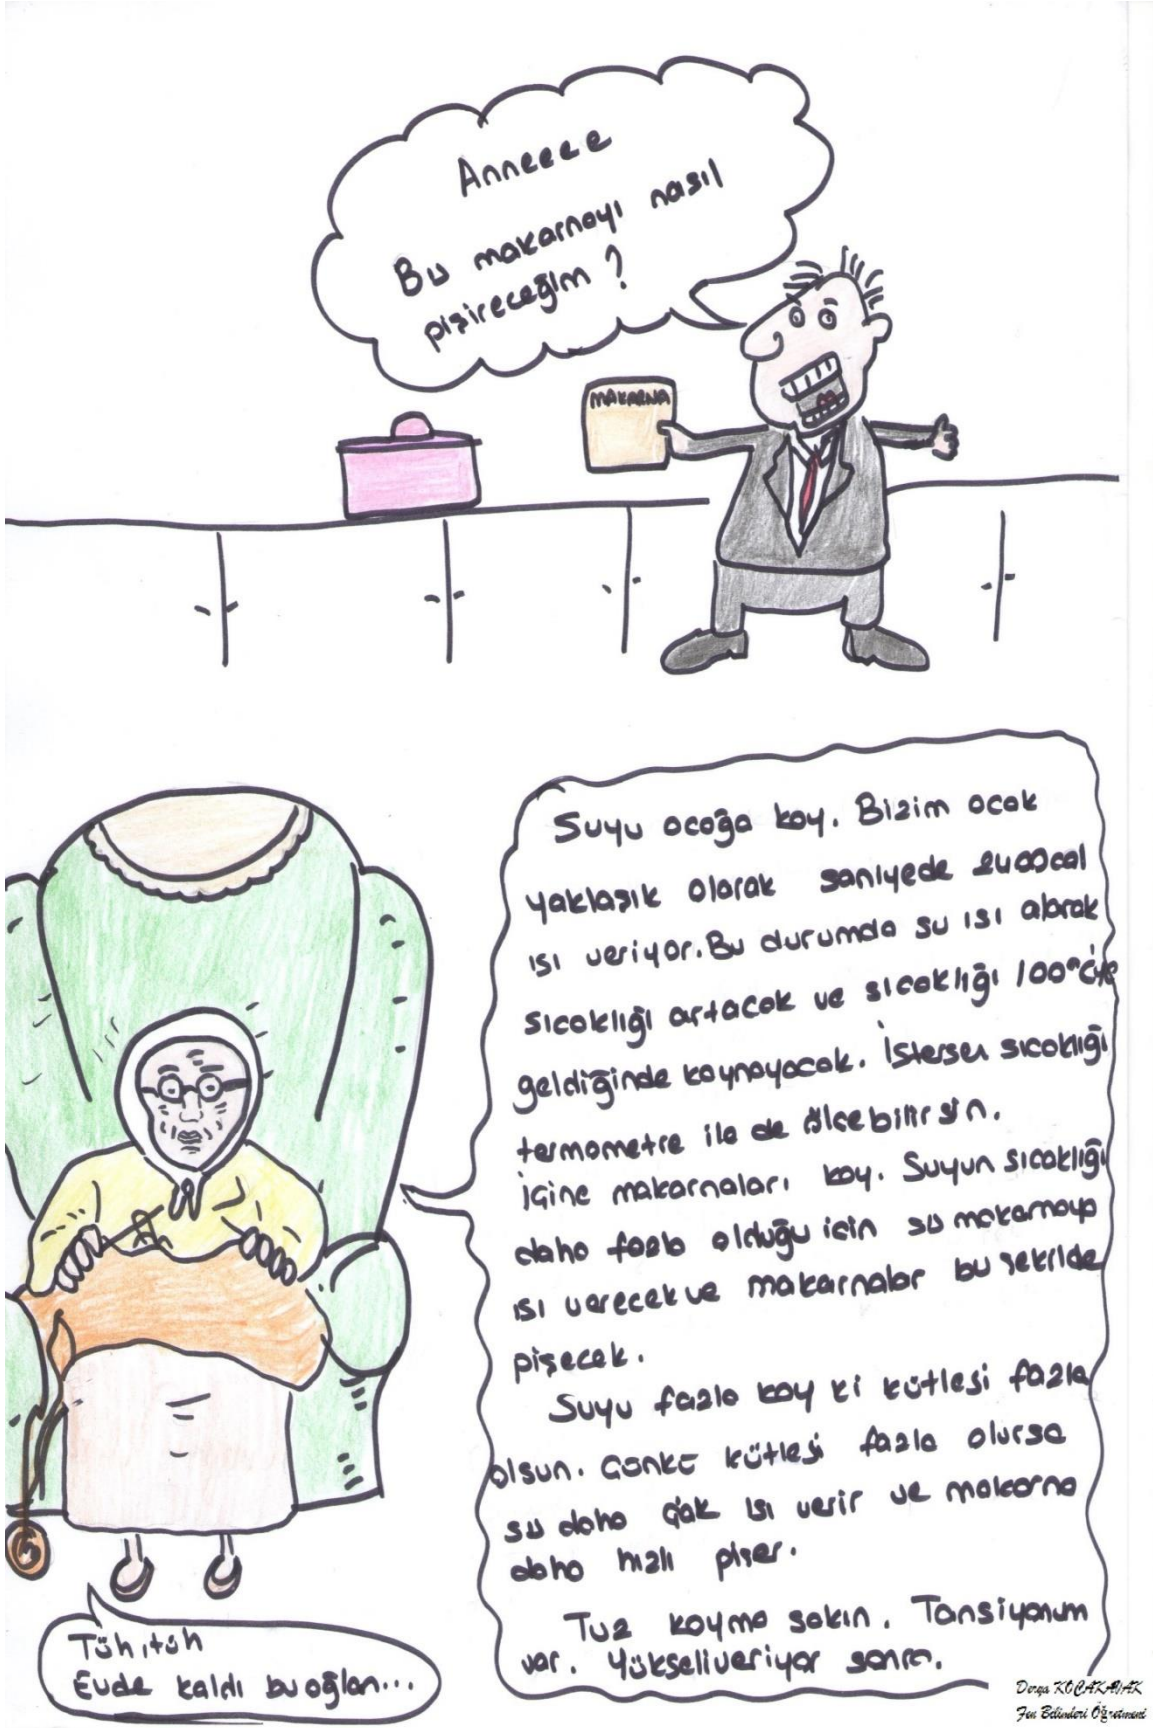 Anneeee
Bu makarnayı nasıl
pişireceğim ?
MAKARNA
Suyu ocağa koy. Bizim ocak
yaklaşık olarak saniyede 2400cal
ısı veriyor. Bu durumda su ısı alarak
sıcaklığı artacak ve sıcaklığı 100°C'ye
geldiğinde kaynayacak. İstersen sıcaklığı
termometre ile de ölçebilirsin.
İçine makarnaları koy. Suyun sıcaklığı
daha fazla olduğu için su makarnaya
ısı verecek ve makarnalar bu şekilde
pişecek.
Suyu fazla koy ki kütlesi fazla
olsun. Çünkü kütlesi fazla olursa
su daha çok ısı verir ve makarna
daha hızlı pişer.
Tuz koyma sakın. Tansiyonum
var. Yükseliveriyor sonra.
Tüh,tüh
Evde kaldı bu oğlan...
Derya KOÇAKAVAK
Fen Bilimleri Öğretmeni